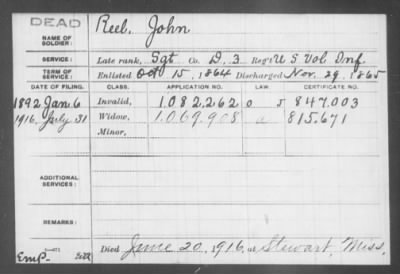 DEAD
NAME OF SOLDIER: Reel, John
SERVICE: Late rank, Sgt Co. D, 3 Reg't U S Vol Inf.
TERM OF SERVICE: Enlisted Oct 15, 1864 Discharged Nov. 29, 1865
DATE OF FILING. CLASS. APPLICATION NO. LAW. CERTIFICATE NO.
1892 Jan 6 Invalid, 1.082.262 847.003
1916. July 31 Widow, 1.069.908 a 815.671
Minor,
ADDITIONAL SERVICES:
REMARKS:
Died June 20, 1916, at Stewart, Miss.
Emp.